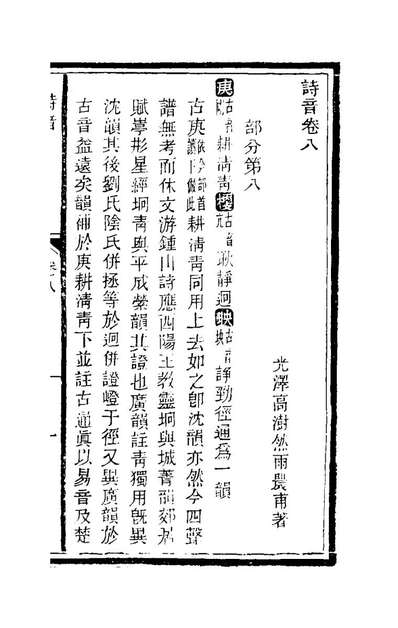 詩音卷八
光澤高澍然雨農甫著
部分第八
庚古音耕清青梗古音耿靜迥映古音諍勁徑通爲一韻
古庚依今部首讀下倣此耕清青同用上去如之卽沈韻亦然今四聲
譜無考而休文游鍾山詩應西陽王敎靈坰與城菁韻郊居
賦形星經坰靑與平成縈韻其證也廣韻註靑獨用旣異
沈韻其後劉氏陰氏併拯等於迥併證嶝于徑又異廣韻於
古音益遠矣韻補於庚耕淸靑下並註古通眞以易音及楚